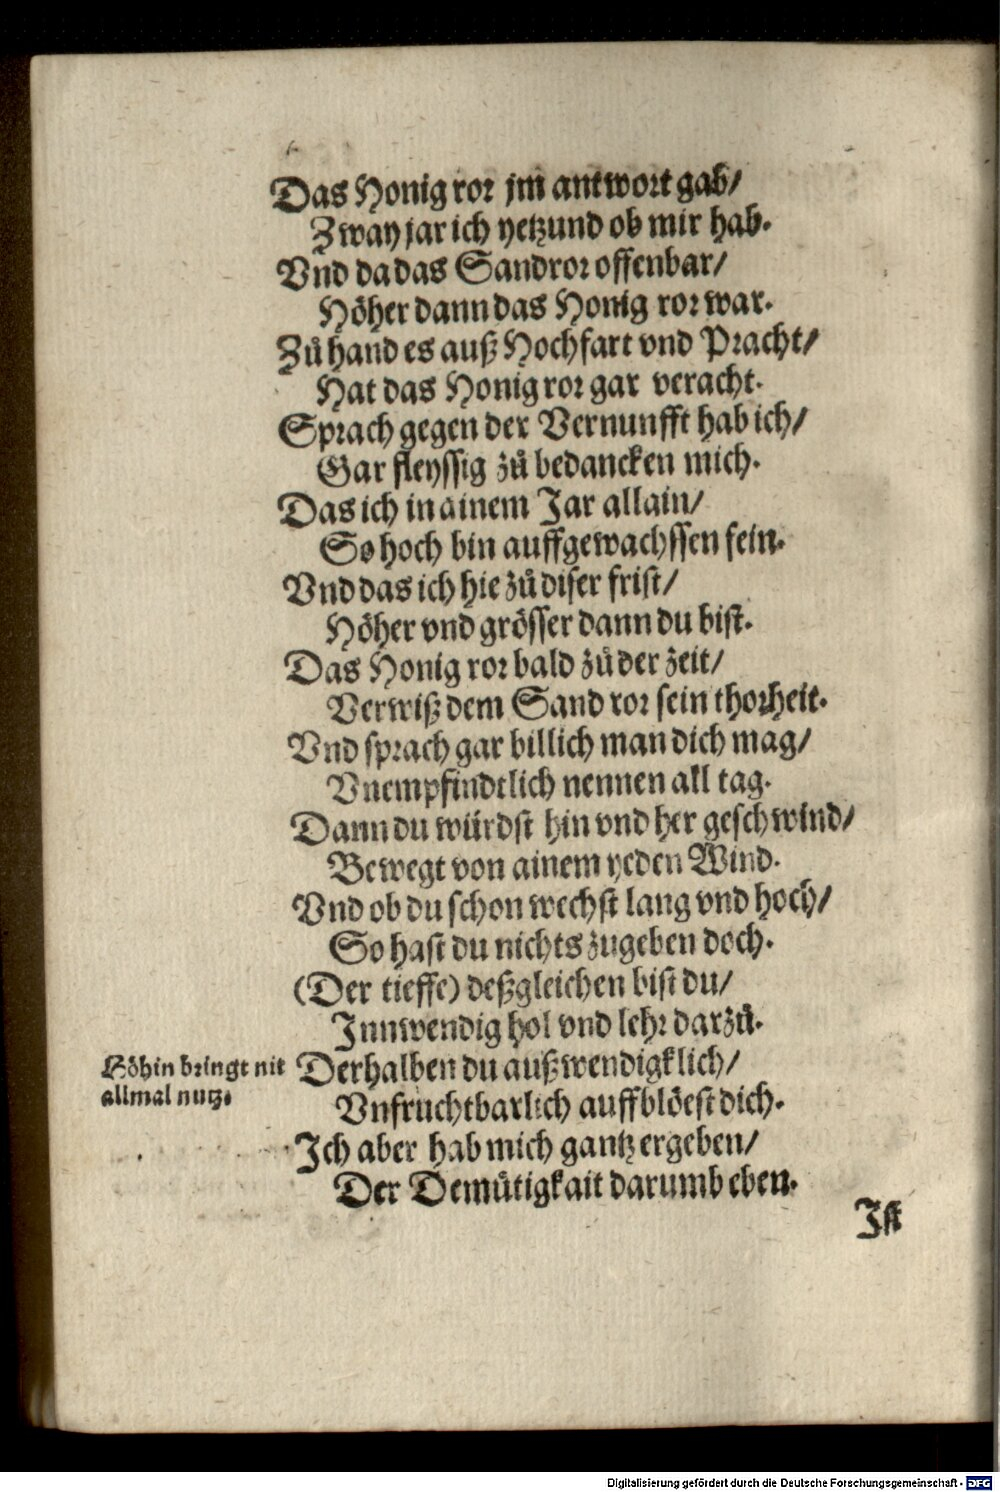 Das Honig ror jm antwort gab/
Zway jar ich yetzund ob mir hab.
Vnd da das Sandror offenbar/
Höher dann das Honig ror war.
Zů hand es auß Hochfart vnd Pracht/
Hat das Honig ror gar veracht.
Sprach gegen der Vernunfft hab ich/
Gar fleyssig zů bedancken mich.
Das ich in ainem Jar allain/
So hoch bin auffgewachssen fein.
Vnd das ich hie zů diser frist/
Höher vnd grösser dann du bist.
Das Honig ror bald zů der zeit/
Verwiß dem Sand ror sein thorheit.
Vnd sprach gar billich man dich mag/
Vnempfindtlich nennen all tag.
Dann du würdst hin vnd her geschwind/
Bewegt von ainem yeden Wind.
Vnd ob du schon wechst lang vnd hoch/
So hast du nichts zugeben doch.
(Der tieffe) deßgleichen bist du/
Innwendig hol vnd lehr darzů.
Höhin bringt nit
allmal nutz.
Derhalben du außwendigklich/
Vnfruchtbarlich auffblöest dich.
Ich aber hab mich gantz ergeben/
Der Demůtigkait darumb eben.
Ist
Digitalisierung gefördert durch die Deutsche Forschungsgemeinschaft - DFG